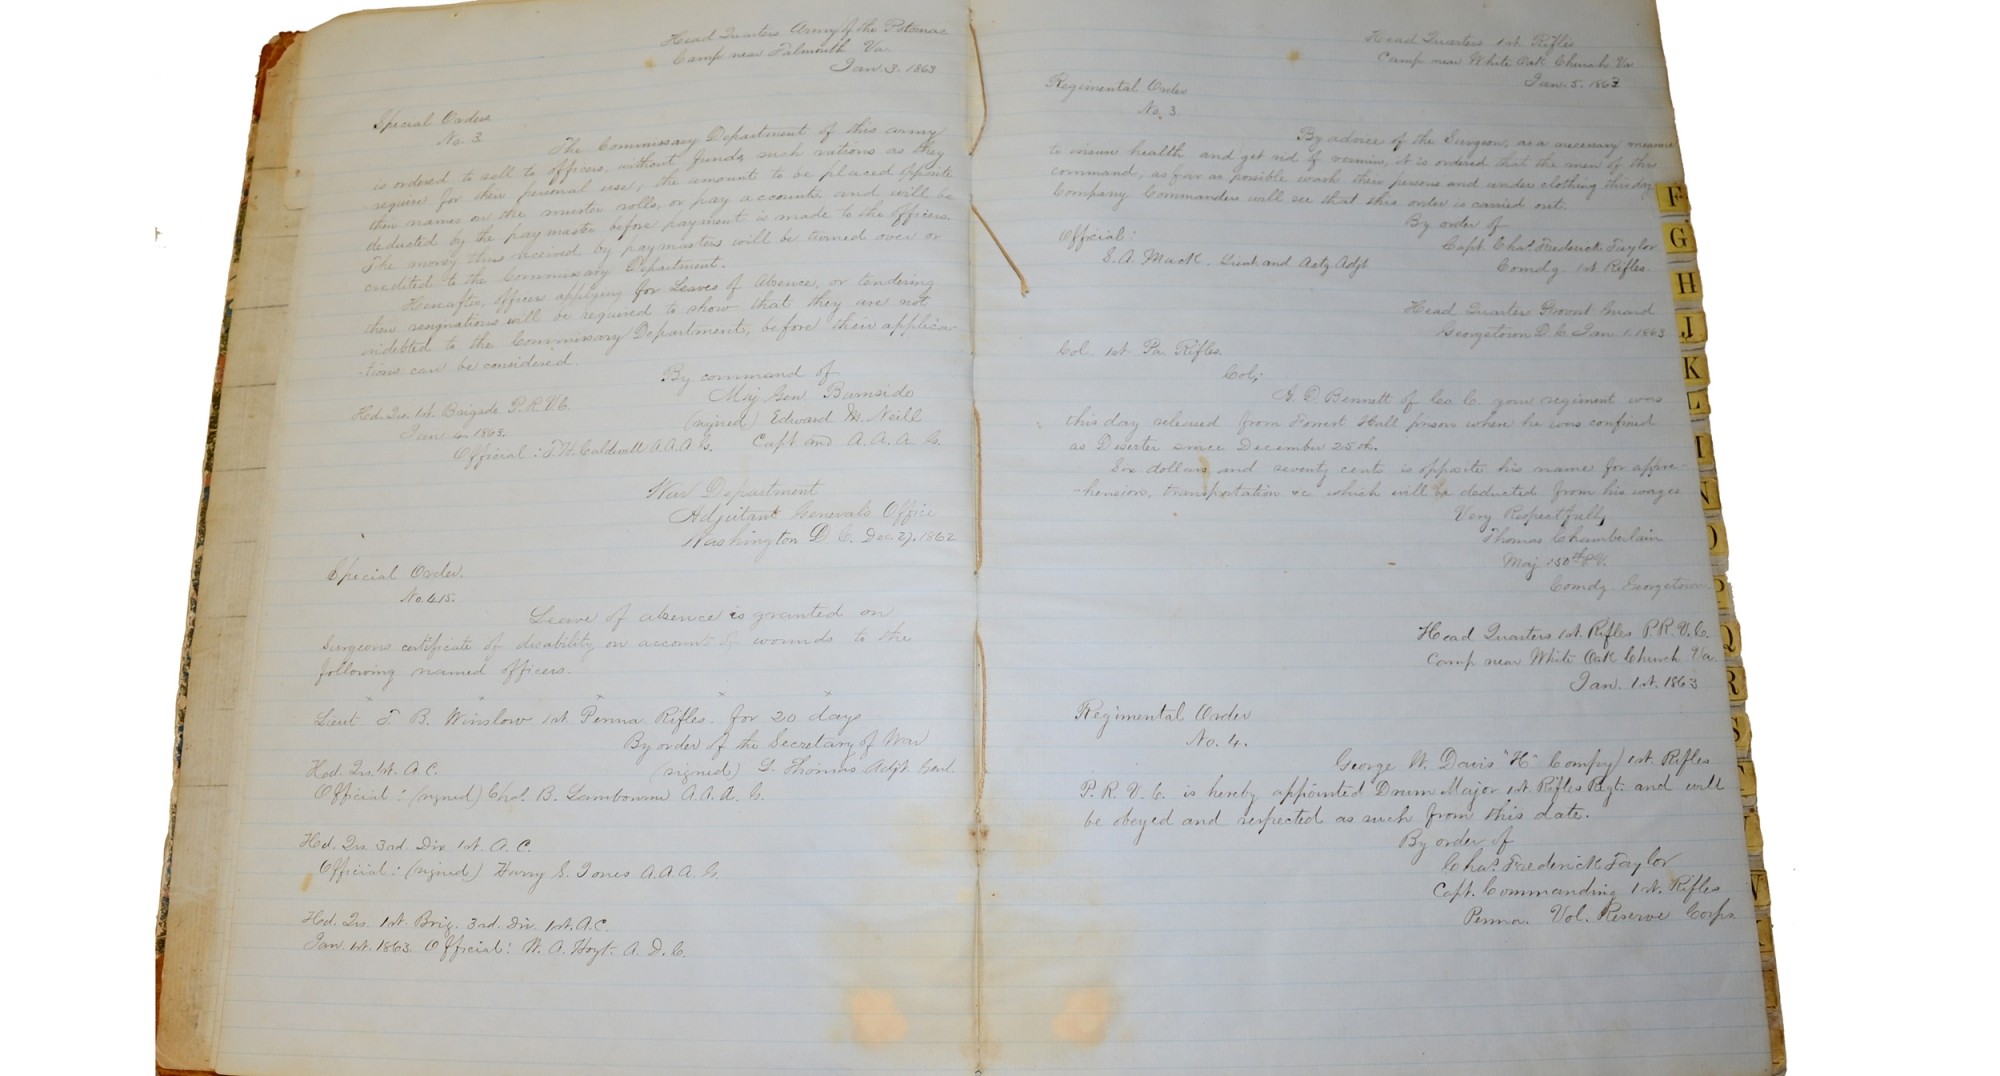 Head Quarters Army of the Potomac
Camp near Falmouth Va.
Jan. 3. 1863
Special Orders
No. 3
The Commissary Department of this army
is ordered to sell to officers, without funds, such rations as they
require for their personal use; the amount to be placed opposite
their names on the muster rolls, or pay accounts, and will be
deducted by the paymaster before payment is made to the officers.
The money thus received by paymasters will be turned over or
credited to the Commissary Department.
Hereafter, officers applying for Leaves of Absence, or tendering
their resignations will be required to show that they are not
indebted to the Commissary Department, before their applica-
-tions can be considered.
By command of
Maj Gen. Burnside
(signed) Edward M. Neill
Capt and A. A. A. G.
Hd. Qrs. 1st. Brigade P.R.V.C.
Jan. 4. 1863.
Official: T. H. Caldwell A.A.A.G.
War Department
Adjutant Generals Office
Washington D. C. Dec. 27. 1862
Special Order.
No. 415.
Leave of absence is granted on
Surgeons certificate of disability on account of wounds to the
following named officers.
x x x x x
Lieut T. B. Winslow 1st. Penna. Rifles. for 20 days
By order of the Secretary of War
(signed) L. Thomas Adjt. Genl.
Hed. Qrs. 1st. A. C.
Official: (signed) Chas. B. Lambourne A. A. A. G.
Hd. Qrs. 3rd. Div. 1st. A. C.
Official: (signed) Harry S. Jones A.A.A.G.
Hd. Qrs. 1st. Brig. 3rd. Div. 1st. A.C.
Jan. 1st. 1863. Official: W. A. Hoyt. A. D. C.
Head Quarters 1st. Rifles
Camp near White Oak Church Va
Jan. 5. 1863
Regimental Order
No. 3
By advice of the Surgeon, as a necessary measure
to insure health and get rid of vermin, it is ordered that the men of this
command, as far as possible wash their persons and under clothing this day
Company Commanders will see that this order is carried out.
By order of
Capt. Chas. Frederick Taylor
Comdg. 1st. Rifles.
Official:
S. A. Mack. Lieut and Actg Adjt
Head Quarters Provost Guard
Georgetown D. C. Jan. 1. 1863
Col. 1st. Pa. Rifles.
Col;
A. D. Bennett of Co. C. your regiment was
this day released from Forrest Hall prison where he was confined
as Deserter since December 25th.
Six dollars and seventy cents is opposite his name for appre-
-hension, transportation &c which will be deducted from his wages
Very Respectfully
Thomas Chamberlain
Maj 150th P.V.
Comdg. Georgetown
Head Quarters 1st. Rifles P. R. V. C.
Camp near White Oak Church Va.
Jan. 1st. 1863
Regimental Order
No. 4.
George W. Davis "H" Compy) 1st. Rifles
P. R. V. C. is hereby appointed Drum Major 1st. Rifles Regt. and will
be obeyed and respected as such from this date.
By order of
Chas. Frederick Taylor
Capt. Commanding 1st. Rifles
Penna. Vol. Reserve Corps
F
G
H
J
K
L
M
N
O
P
Q
R
S
T